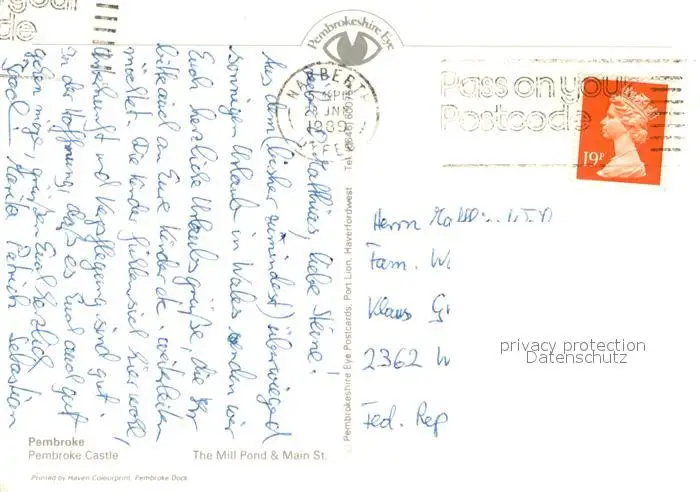 Pembrokeshire Eye
NARBERTH
JN
1989
DYFED
Pass on your
Postcode
19P
Lieber Matthias, liebe Steine!
Aus dem (bisher zumindest) überwiegend
sonnigen Urlaub in Wales senden wir
Euch herzliche Urlaubsgrüße, die Ihr
bitte auch an Eure Kinder etc. weiterleiten
möchtet. Die Kinder fühlen sich hier wohl,
Unterkunft und Verpflegung sind gut.
In der Hoffnung, daß es Euch auch gut
gehen möge, grüßen Euch herzlich
Patrick Sebastian
Pembrokeshire Eye Postcards, Port Lion, Haverfordwest Tel.
Herrn
Fam. W
Klaus G
2362 W
Fed. Rep
privacy protection
Datenschutz
Pembroke
Pembroke Castle The Mill Pond & Main St.
Printed by Haven Colourprint, Pembroke Dock